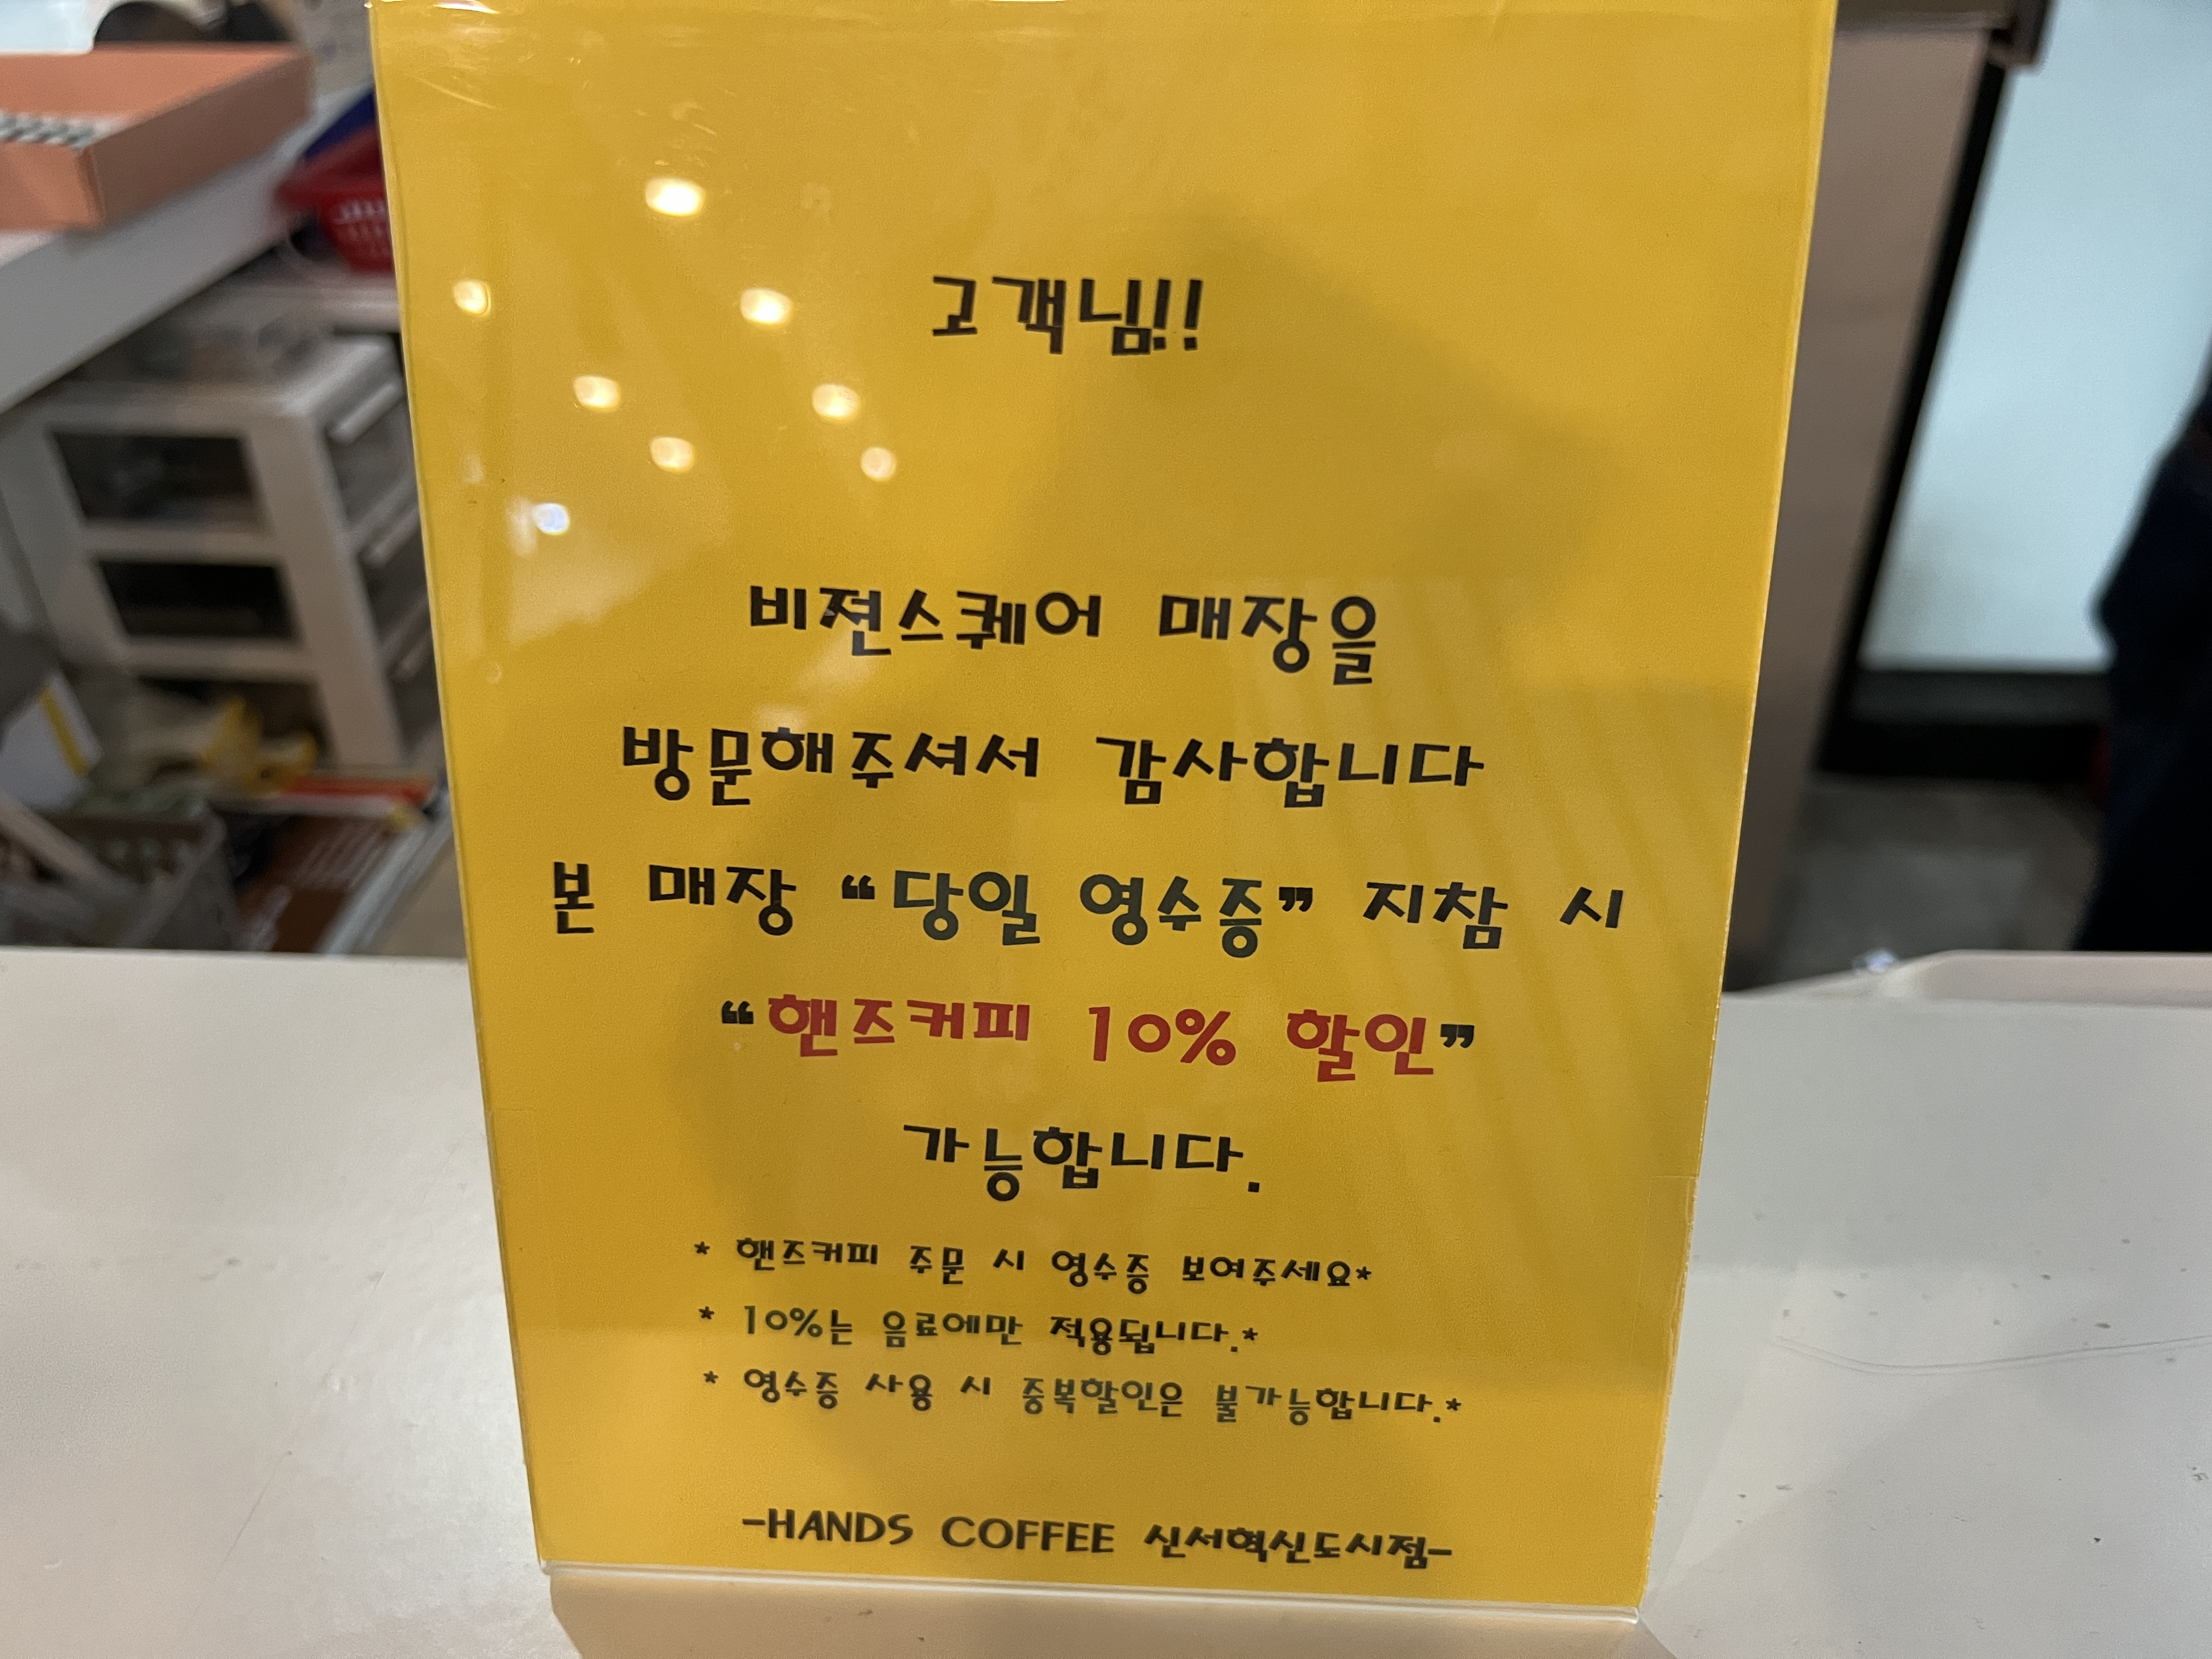 고객님!!
비젼스퀘어 매장을
방문해주셔서 감사합니다
본 매장 “당일 영수증” 지참 시
“핸즈커피 10% 할인”
가능합니다.
* 핸즈커피 주문 시 영수증 보여주세요*
* 10%는 음료에만 적용됩니다.*
* 영수증 사용 시 중복할인은 불가능합니다.*
-HANDS COFFEE 신서혁신도시점-